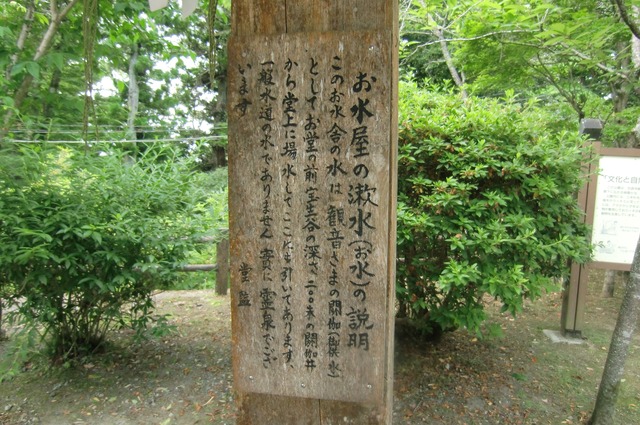 お水屋の漱水(お水)の説明
このお水舎の水は観音さまの閼伽(御供水)
としてお堂の前室谷の深さ二〇〇米の閼伽井
から堂上に揚水してここに引いてあります、
一般水道の水でありません実に霊泉でござ
います 堂監
文化と自